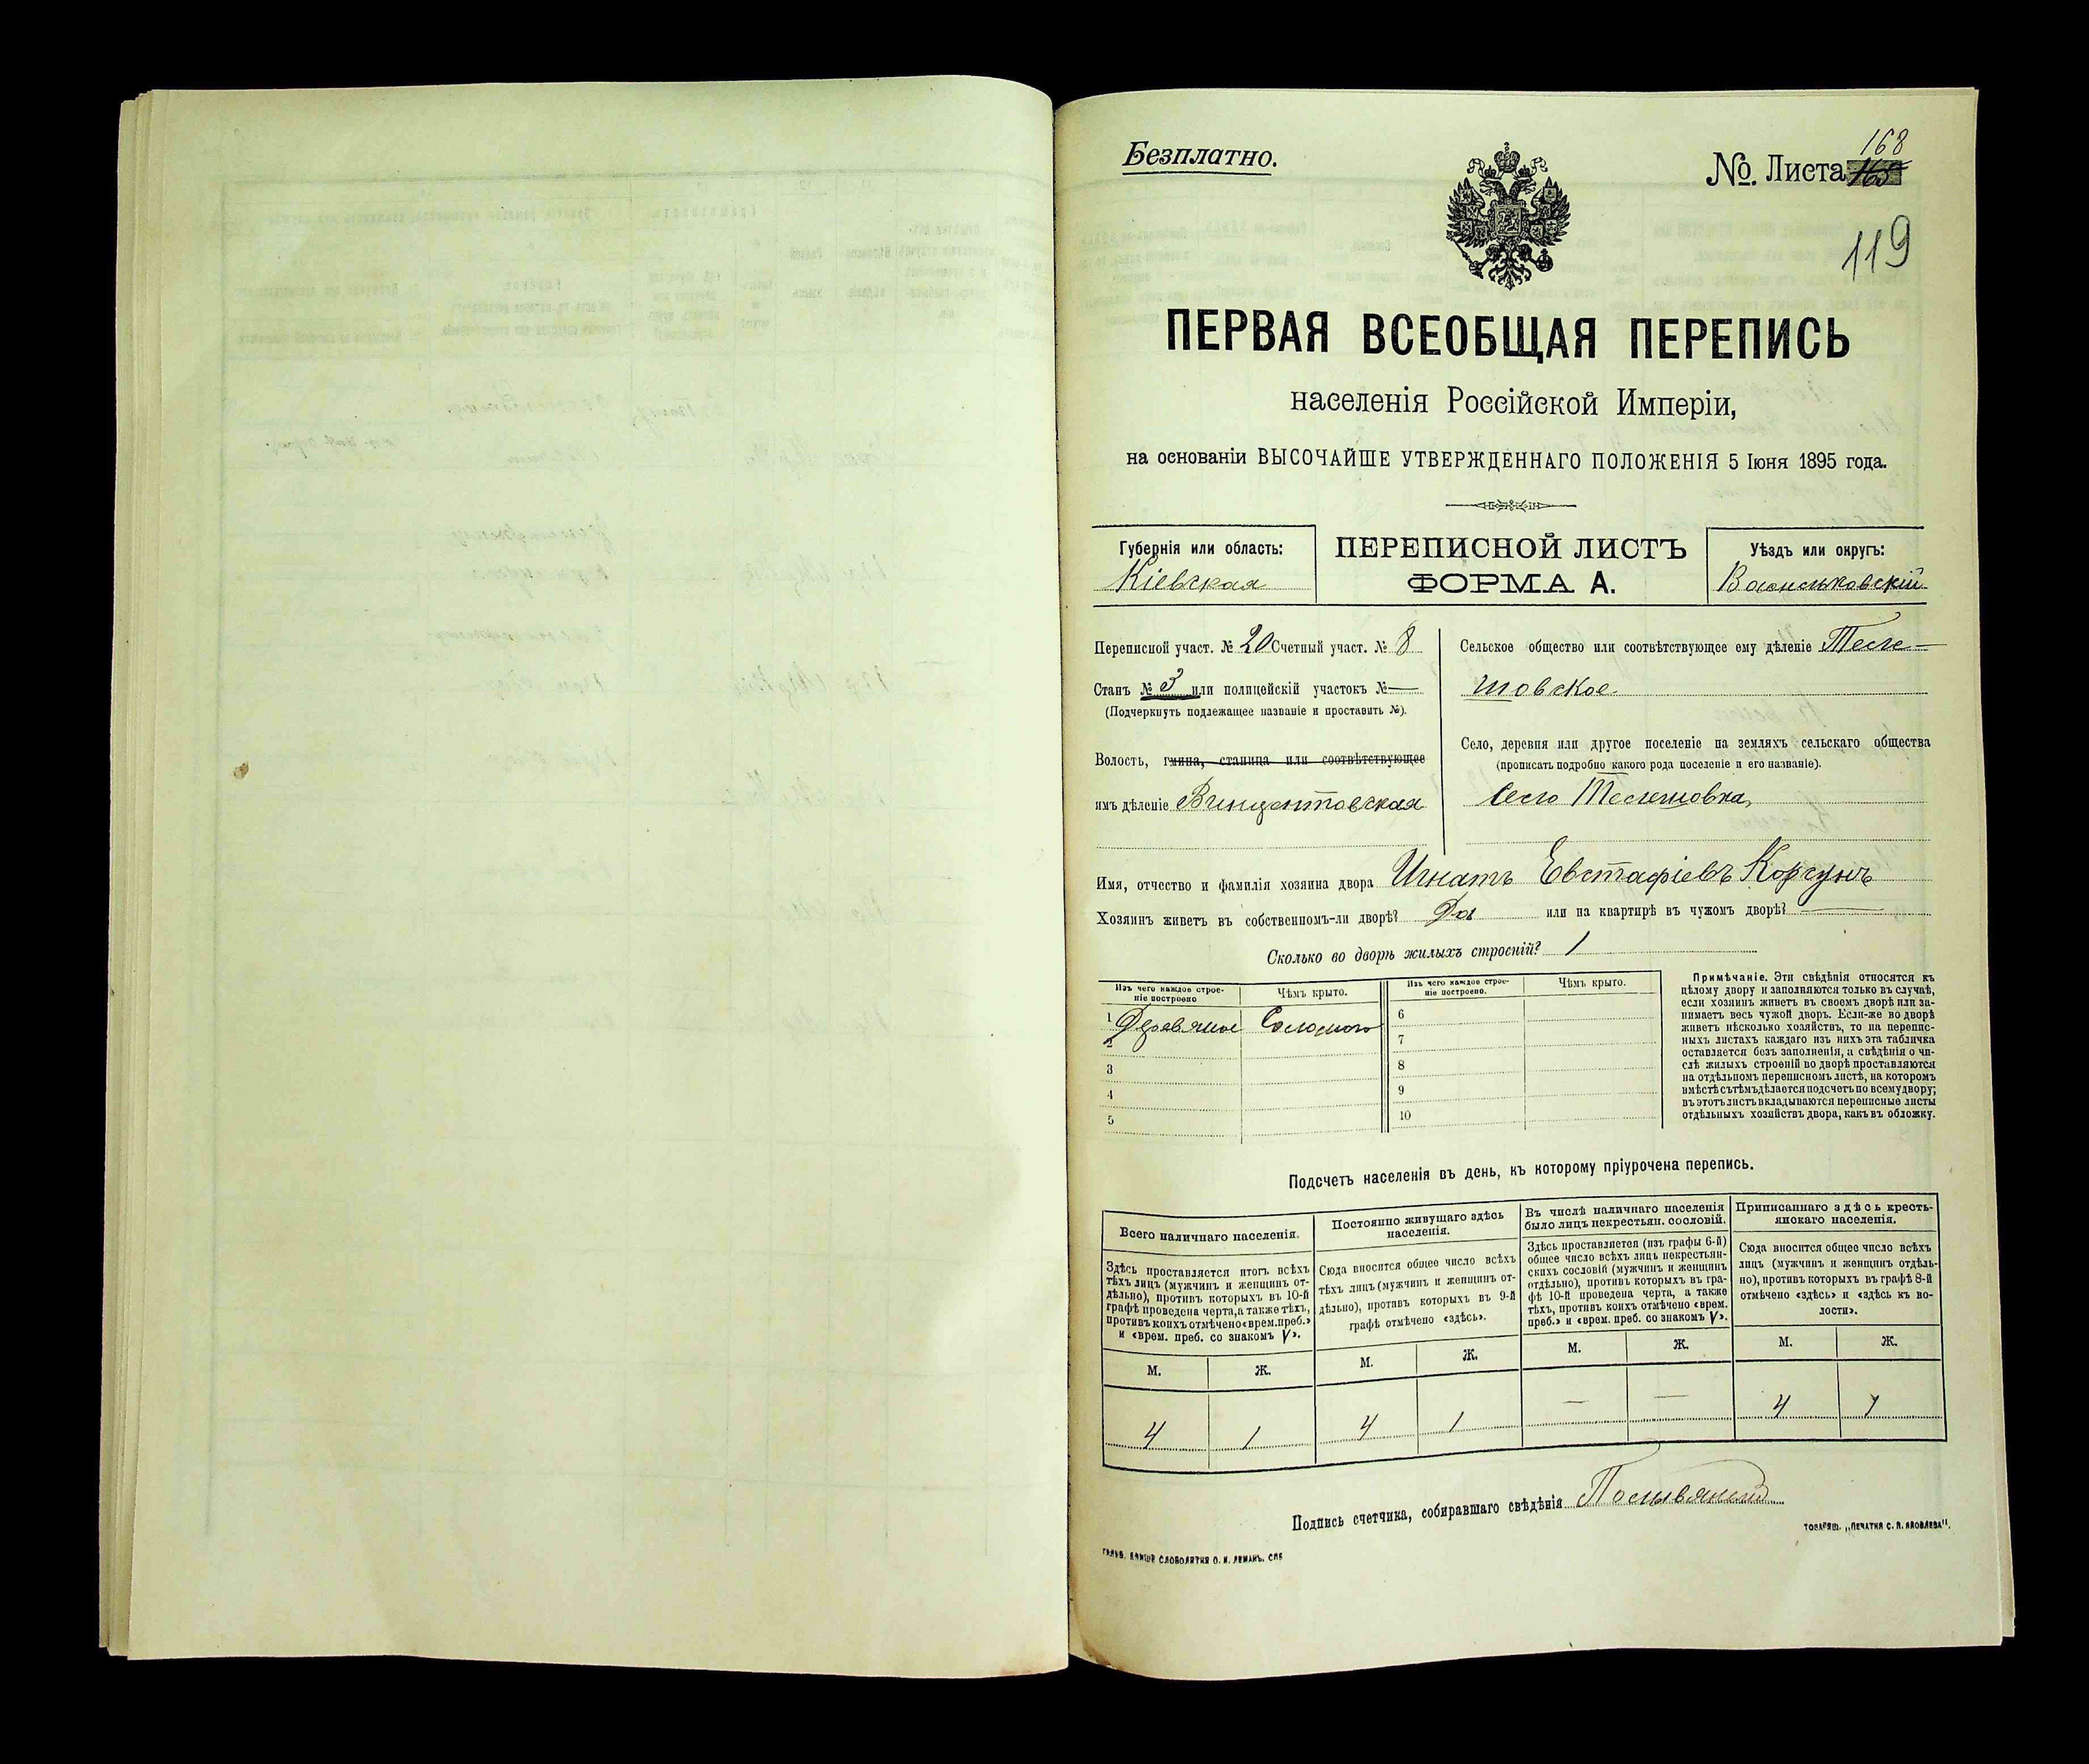 Безплатно.
168
№. Листа 165
119
ПЕРВАЯ ВСЕОБЩАЯ ПЕРЕПИСЬ
населенія Россійской Имперіи,
на основаніи ВЫСОЧАЙШЕ УТВЕРЖДЕННАГО ПОЛОЖЕНІЯ 5 Іюня 1895 года.
Губернія или область:
Кіевская
ПЕРЕПИСНОЙ ЛИСТЪ
ФОРМА А.
Уѣздъ или округъ:
Васильковскій
Переписной участ. № 20 Счетный участ. № 8
Станъ № 3 или полицейскій участокъ № —
(Подчеркнуть подлежащее названіе и проставить №).
Волость, гмина, станица или соотвѣтствующее
имъ дѣленіе Винцентовская
Сельское общество или соотвѣтствующее ему дѣленіе Теле-
шовское
Село, деревня или другое поселеніе на земляхъ сельскаго общества
(прописать подробно какого рода поселеніе и его названіе).
Село Телешовка,
Имя, отчество и фамилія хозяина двора Игнатъ Евстафіевъ Корсунъ
Хозяинъ живетъ въ собственномъ-ли дворѣ? Да или на квартирѣ въ чужомъ дворѣ? —
Сколько во дворѣ жилыхъ строеній? 1
Изъ чего каждое строе-
ніе построено
Чѣмъ крыто.
Изъ чего каждое строе-
ніе построено.
Чѣмъ крыто.
1 Деревяное Соломою
2
3
4
5
6
7
8
9
10
Примѣчаніе. Эти свѣдѣнія относятся къ
цѣлому двору и заполняются только въ случаѣ,
если хозяинъ живетъ въ своемъ дворѣ или за-
нимаетъ весь чужой дворъ. Если-же во дворѣ
живетъ нѣсколько хозяйствъ, то на перепис-
ныхъ листахъ каждаго изъ нихъ эта табличка
оставляется безъ заполненія, а свѣдѣнія о чи-
слѣ жилыхъ строеній во дворѣ проставляются
на отдѣльномъ переписномъ листѣ, на которомъ
вмѣстѣ съ тѣмъ дѣлается подсчетъ по всему двору;
въ этотъ листъ вкладываются переписные листы
отдѣльныхъ хозяйствъ двора, какъ въ обложку.
Подсчетъ населенія въ день, къ которому пріурочена перепись.
Всего наличнаго населенія.
Здѣсь проставляется итогъ всѣхъ
тѣхъ лицъ (мужчинъ и женщинъ от-
дѣльно), противъ которыхъ въ 10-й
графѣ проведена черта, а также тѣхъ,
противъ коихъ отмѣчено «врем. преб.»
и «врем. преб. со знакомъ V».
М. Ж.
4 1
Постоянно живущаго здѣсь
населенія.
Сюда вносится общее число всѣхъ
тѣхъ лицъ (мужчинъ и женщинъ от-
дѣльно), противъ которыхъ въ 9-й
графѣ отмѣчено «здѣсь».
М. Ж.
4 1
Въ числѣ наличнаго населенія
было лицъ некрестьян. сословій.
Здѣсь проставляется (изъ графы 6-й)
общее число всѣхъ лицъ некрестьян-
скихъ сословій (мужчинъ и женщинъ
отдѣльно), противъ которыхъ въ гра-
фѣ 10-й проведена черта, а также
тѣхъ, противъ коихъ отмѣчено «врем.
преб.» и «врем. преб. со знакомъ V».
М. Ж.
— —
Приписаннаго здѣсь кресть-
янскаго населенія.
Сюда вносится общее число всѣхъ
лицъ (мужчинъ и женщинъ отдѣль-
но), противъ которыхъ въ графѣ 8-й
отмѣчено «здѣсь» и «здѣсь къ во-
лости».
М. Ж.
4 1
Подпись счетчика, собиравшаго свѣдѣнія
ТОВАРИЩ. „ПЕЧАТНЯ С. П. ЯКОВЛЕВА".
СЛОВОЛИТНЯ О. И. ЛЕМАНЪ. СПБ